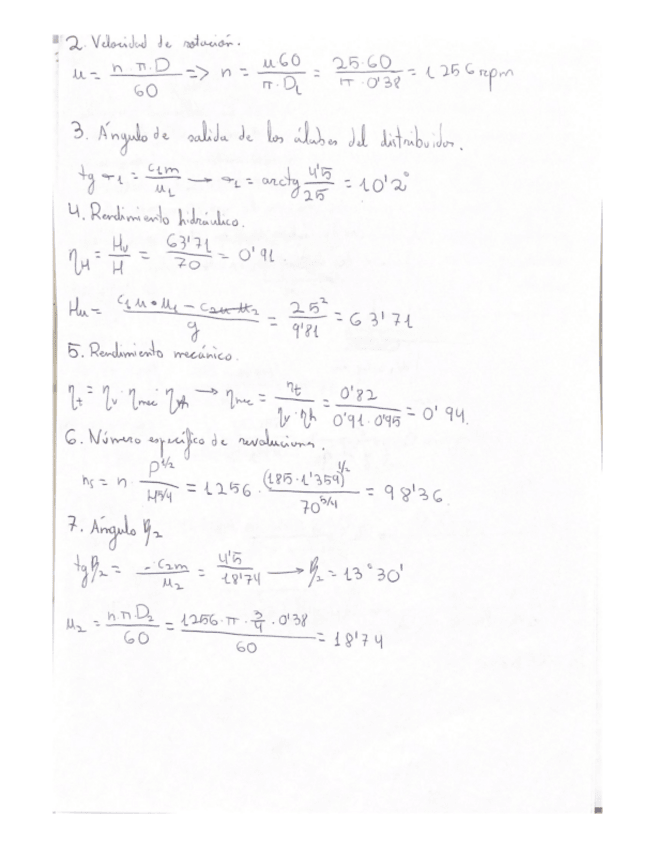 2. Velocidad de rotación.
u = n·π·D / 60 => n = u60 / π·D₁ = 25·60 / π·0'38 = 1256 rpm
3. Ángulo de salida de los álabes del distribuidor.
tg α₁ = c₁m / u₁ → α₁ = arctg 4'5 / 25 = 10'2°
4. Rendimiento hidráulico.
ηH = Hu / H = 63'71 / 70 = 0'91
Hu = c₁u·u₁ - c₂u·u₂ / g = 25² / 9'81 = 63'71
5. Rendimiento mecánico.
ηt = ηv·ηmec·ηh → ηmec = ηt / ηv·ηh = 0'82 / 0'91·0'95 = 0'94.
6. Número específico de revoluciones.
ns = n · P^1/2 / H^5/4 = 1256 · (185·1'359)^1/2 / 70^5/4 = 98'36.
7. Ángulo β₂
tg β₂ = c₂m / u₂ = 4'5 / 18'74 → β₂ = 13°30'
u₂ = n·π·D₂ / 60 = 1256·π·3/4·0'38 / 60 = 18'74